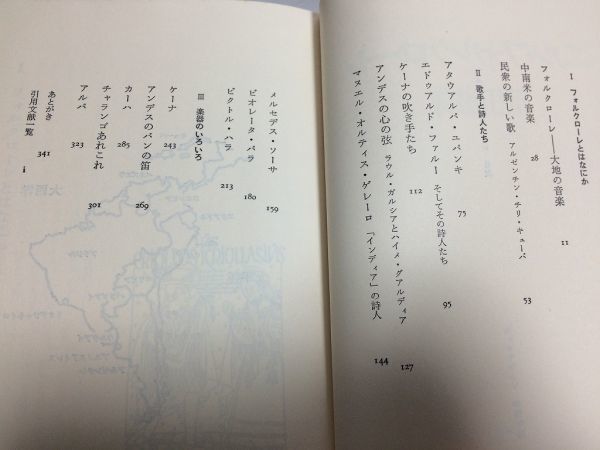 I フォルクローレとはなにか
フォルクローレ――大地の音楽 11
中南米の音楽 28
民衆の新しい歌 アルゼンチン・チリ・キューバ 53
II 歌手と詩人たち
アタウアルパ・ユパンキ 75
エドゥアルド・ファルー そしてその詩人たち 95
ケーナの吹き手たち 112
アンデスの心の弦 ラウル・ガルシアとハイメ・グアルディア 127
マヌエル・オルティス・ゲレーロ 「インディア」の詩人 144
メルセデス・ソーサ 159
ビオレータ・パラ 180
ビクトル・ハラ 213
III 楽器のいろいろ
ケーナ 243
アンデスのパンの笛 269
カーハ 285
チャランゴあれこれ 301
アルパ 323
あとがき 341
引用文献一覧 i